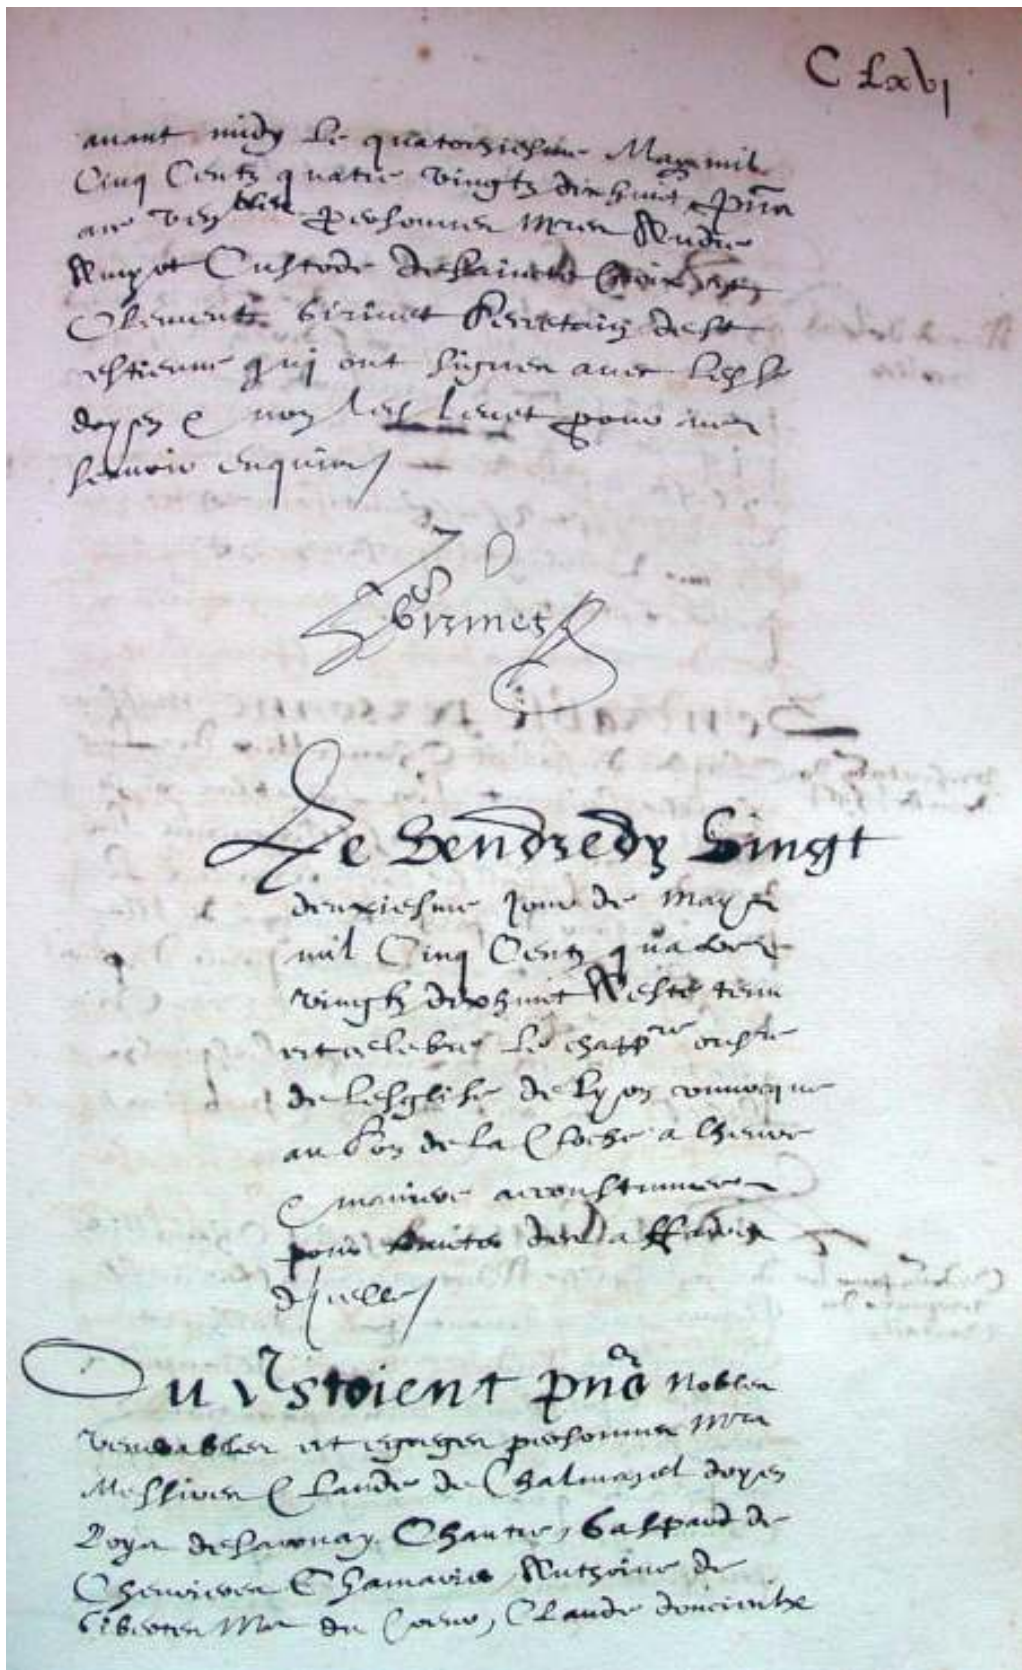 C Lxvj
avant midy le quatorziesme May mil
Cinq Centz quatre vingtz dixhuict pñs
personnes Mres Andre
Amyot Custode de saincte Croix
Clement Girinet secretain de st
estienne qui ont signes avec led sr
doyen & non led
de ce enquis
Girinet
Le Vendredy Vingt
deuxiesme jour de May
mil Cinq Centz quatre
vingtz dixhuict A este tenu
et celebre le chappre
de lesglise de Lyon convocque
au son de la Cloche a lheure
& maniere accoustumees
pour traiter des affaires
dicelle
Ou Estoient pñs Nobles
venerables et egreges personnes Mrs
Messires Claude de Chalmazel doyen
de Chantre, Gaspard de
Chevrieres Chamarier Anthoine de
Giberten Me du Coeur, Claude